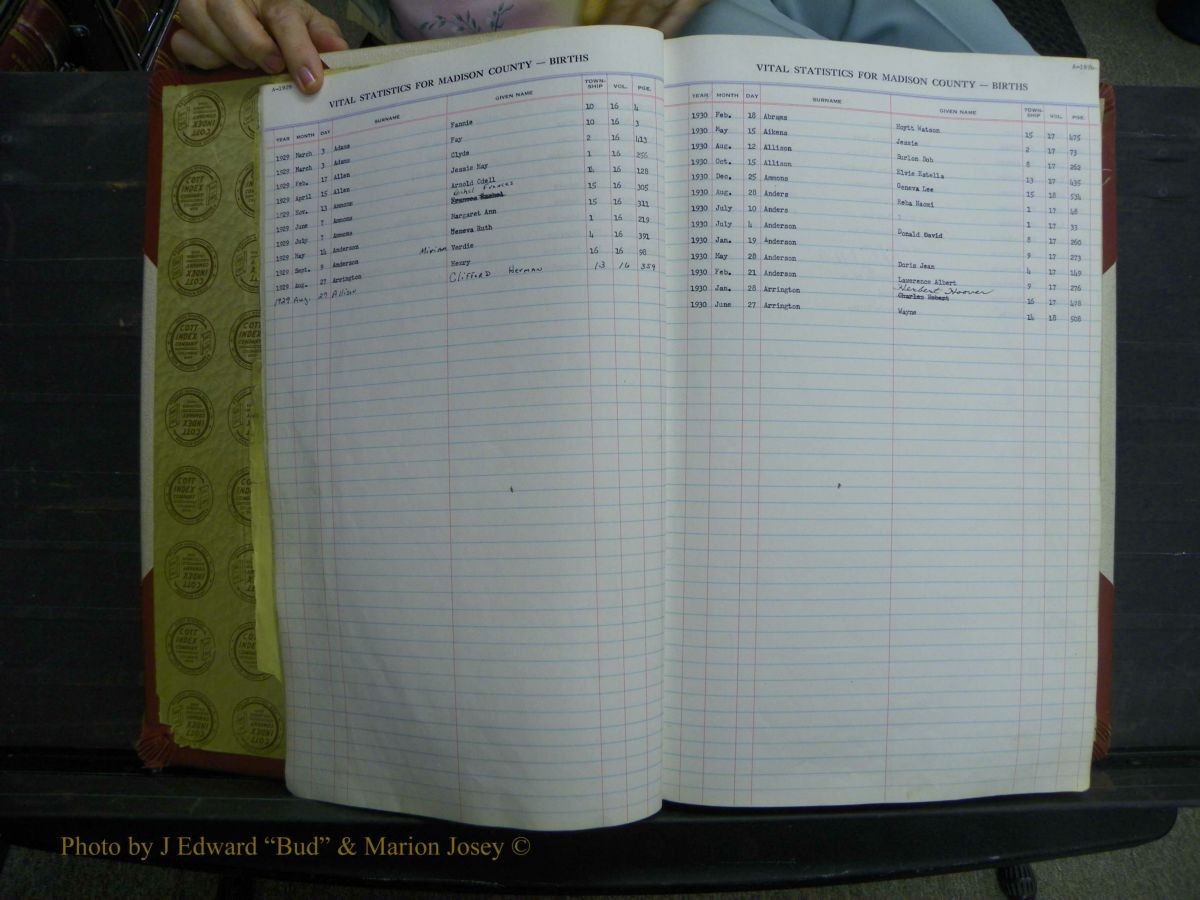 A-1929
VITAL STATISTICS FOR MADISON COUNTY — BIRTHS
YEAR MONTH DAY SURNAME GIVEN NAME TOWN-SHIP VOL. PGE.
1929 March 3 Adams Fannie 10 16 4
1929 March 3 Adams Fay 10 16 3
1929 Feb. 17 Allen Clyde 2 16 413
1929 April 15 Allen Jessie May 1 16 256
1929 Nov. 13 Ammons Arnold Odell 14 16 128
Rachel Frances
1929 June 7 Ammons Frances Rachel 15 16 305
1929 July 7 Ammons Margaret Ann 15 16 311
1929 May 14 Anderson Meneva Ruth 1 16 219
1929 Sept. 9 Anderson Miriam Verdie 4 16 391
1929 Aug. 27 Arrington Henry 16 16 98
1929 Aug. 27 Allison Clifford Herman 13 16 359
A-1930
VITAL STATISTICS FOR MADISON COUNTY — BIRTHS
YEAR MONTH DAY SURNAME GIVEN NAME TOWN-SHIP VOL. PGE.
1930 Feb. 18 Abrams Hoyit Watson 15 17 475
1930 May 15 Aikens Jessie 2 17 73
1930 Aug. 12 Allison Burlon Bob 8 17 262
1930 Oct. 15 Allison Elvis Estella 13 17 435
1930 Dec. 25 Ammons Geneva Lee 15 18 534
1930 Aug. 28 Anders Reba Naomi 1 17 48
1930 July 10 Anders 1 17 33
1930 July 4 Anderson Donald David 8 17 260
1930 Jan. 19 Anderson 9 17 273
1930 May 28 Anderson Doris Jean 4 17 149
1930 Feb. 21 Anderson Lawerence Albert 9 17 276
Herbert Hoover
1930 Jan. 28 Arrington Charles Robert 16 17 478
1930 June 27 Arrington Wayne 14 18 508
COTT INDEX COMPANY
Photo by J Edward “Bud” & Marion Josey ©